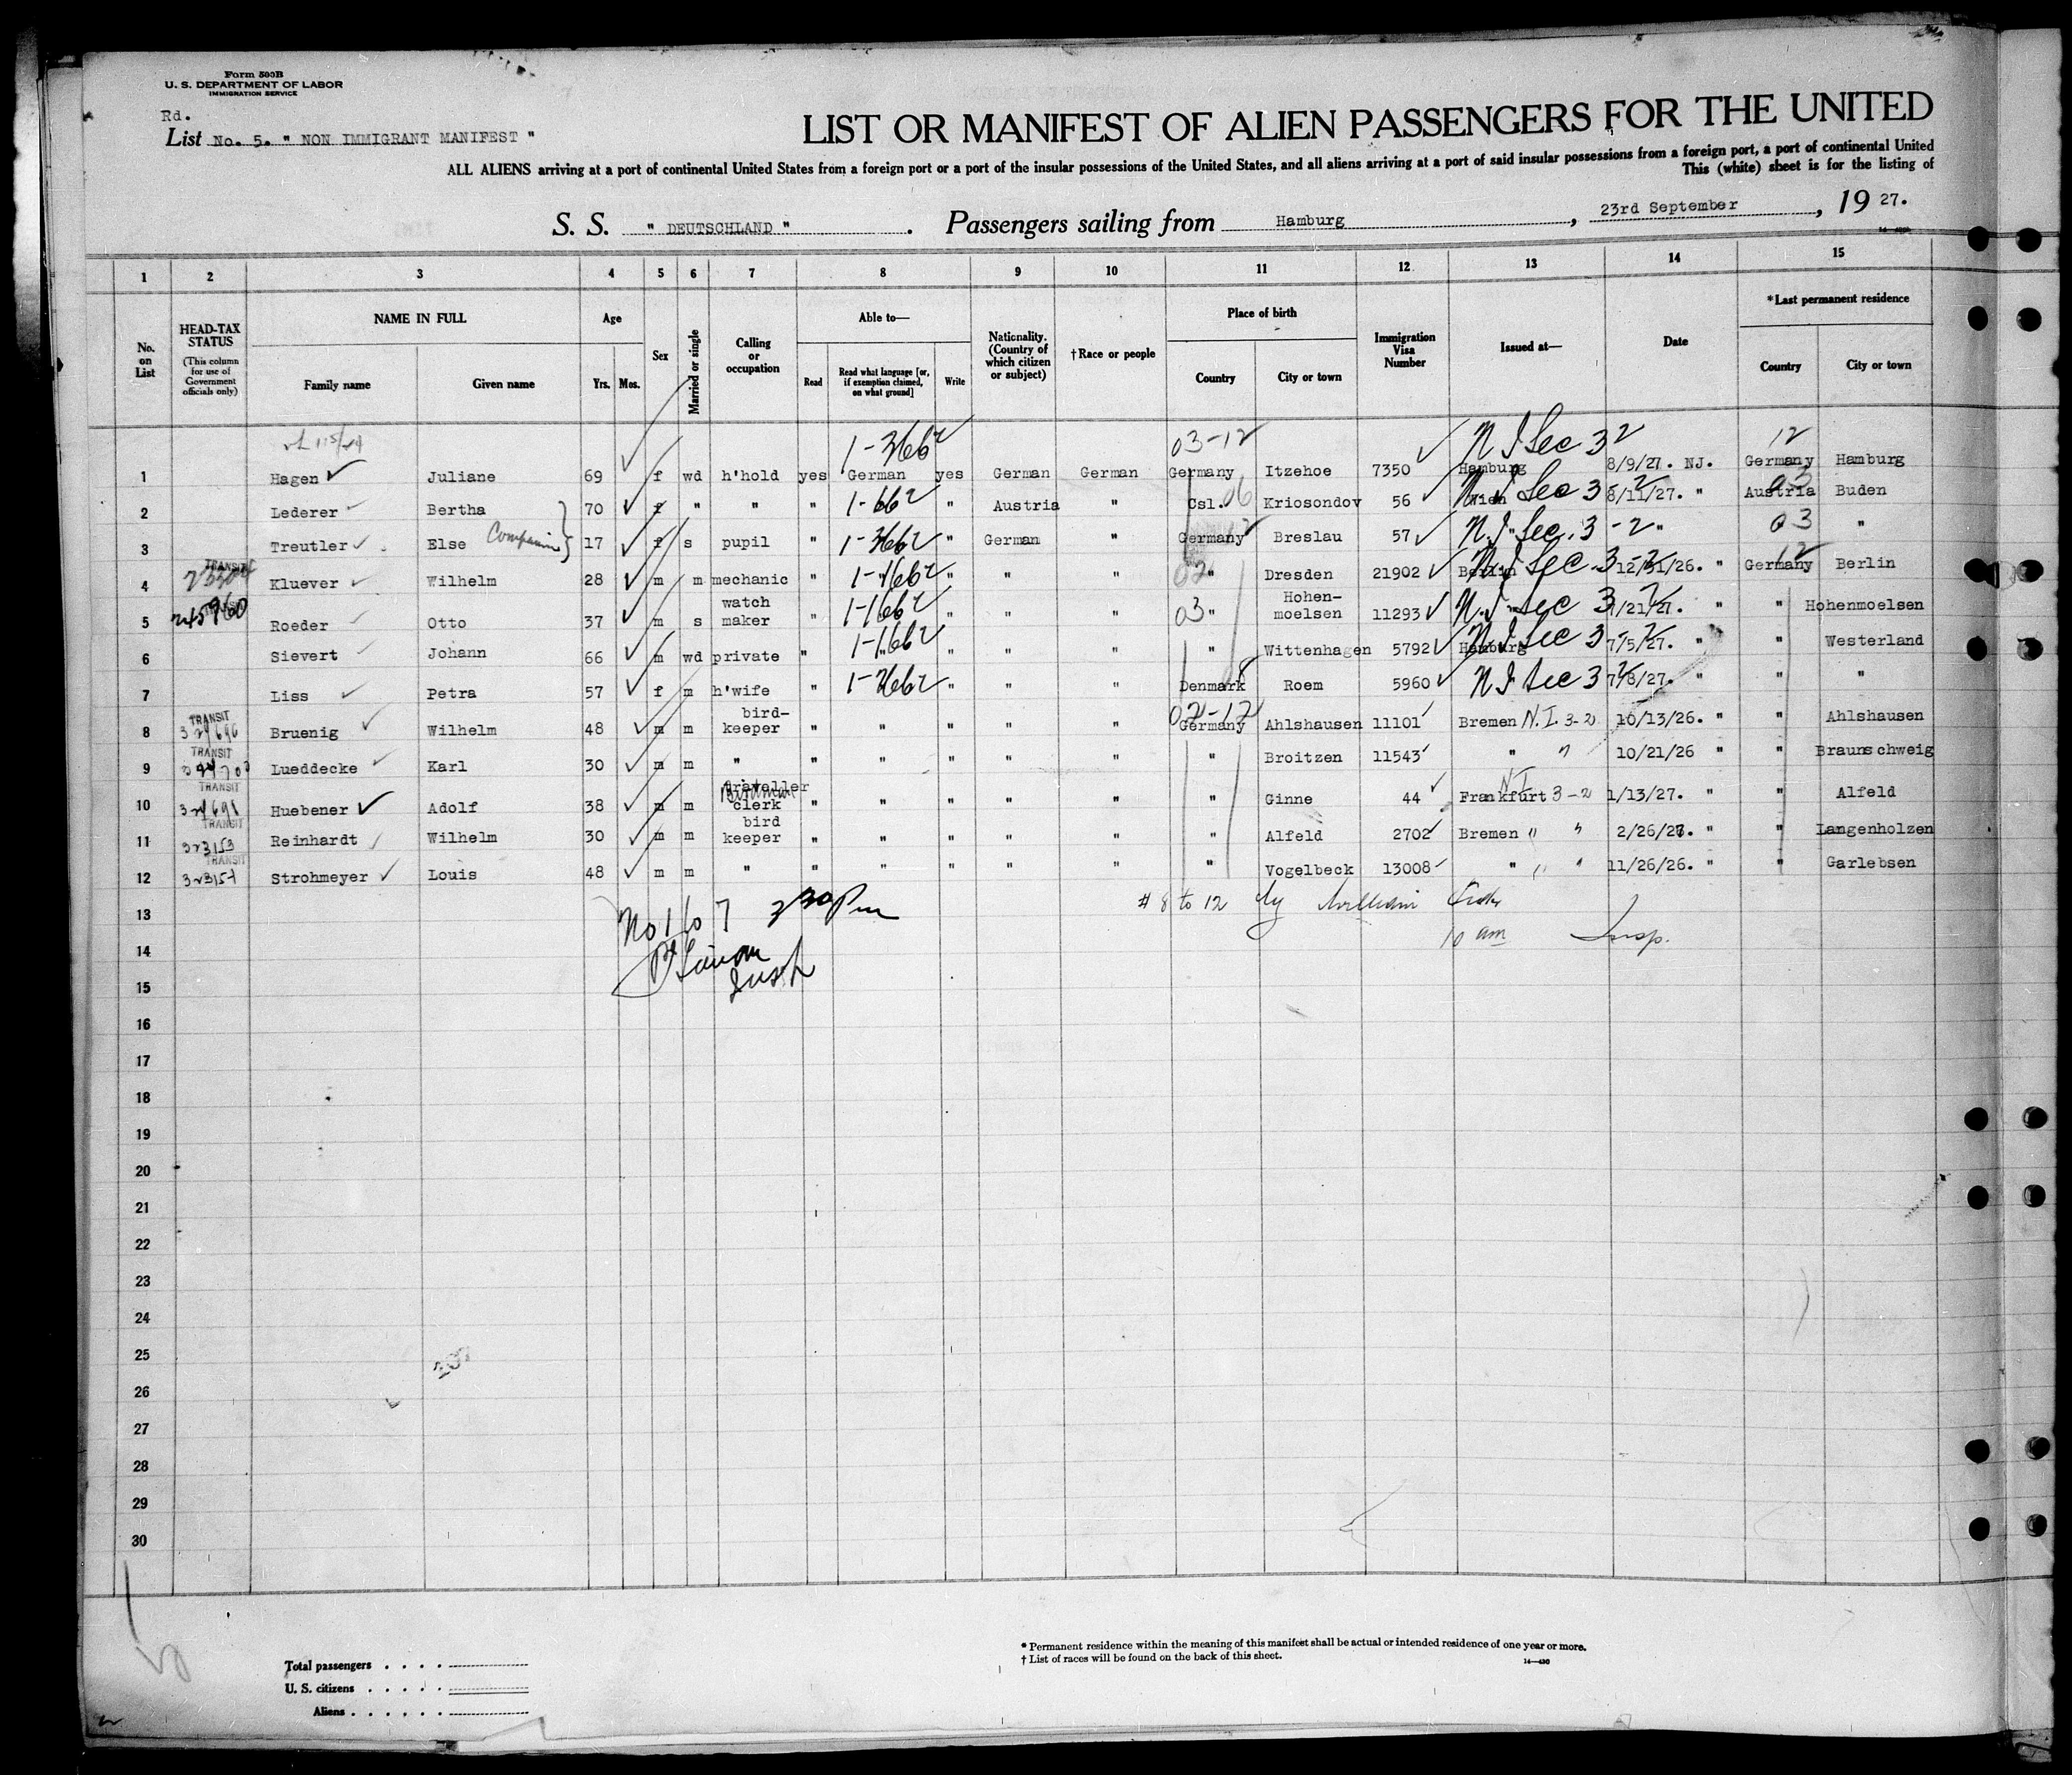 Form 500B
U. S. DEPARTMENT OF LABOR
IMMIGRATION SERVICE
Rd.
List No. 5. " NON IMMIGRANT MANIFEST "
LIST OR MANIFEST OF ALIEN PASSENGERS FOR THE UNITED
ALL ALIENS arriving at a port of continental United States from a foreign port or a port of the insular possessions of the United States, and all aliens arriving at a port of said insular possessions from a foreign port, a port of continental United
This (white) sheet is for the listing of
S. S. " DEUTSCHLAND " . Passengers sailing from Hamburg , 23rd September , 19 27.
1 2 3 4 5 6 7 8 9 10 11 12 13 14 15
No. on List
HEAD-TAX STATUS (This column for use of Government officials only)
NAME IN FULL Family name Given name
Age Yrs. Mos.
Sex
Married or single
Calling or occupation
Able to— Read Read what language [or, if exemption claimed, on what ground] Write
Nationality. (Country of which citizen or subject)
† Race or people
Place of birth Country City or town
Immigration Visa Number
Issued at—
Date
*Last permanent residence Country City or town
03-12 N I Sec 3 2 12
1 Hagen Juliane 69 f wd h'hold yes German yes German German Germany Itzehoe 7350 Hamburg 8/9/27. NJ. Germany Hamburg
2 Lederer Bertha 70 f " " " " Austria " Csl. 06 Kriosondov 56 Wien 8/11/27. " Austria Buden
3 Treutler Else Companion 17 f s pupil " " German " Germany Breslau 57 N.I. Sec. 3-2 " 03 "
4 TRANSIT Kluever Wilhelm 28 m m mechanic " " " " " Dresden 21902 Berlin 12/31/26. " Germany Berlin
5 Roeder Otto 37 m s watch maker " " " " 03 " Hohen-moelsen 11293 N.I Sec 3 /21/27. " " Hohenmoelsen
6 Sievert Johann 66 m wd private " " " " " " Wittenhagen 5792 Hamburg 7/5/27. " " Westerland
7 Liss Petra 57 f m h'wife " " " " Denmark Roem 5960 N I Sec 3 7/8/27. " " "
8 TRANSIT Bruenig Wilhelm 48 m m bird-keeper " " " " " Germany Ahlshausen 11101 Bremen N.I. 3-2 10/13/26. " " Ahlshausen
9 TRANSIT Lueddecke Karl 30 m m " " " " " " " Broitzen 11543 " " 10/21/26 " " Braunschweig
10 TRANSIT 324698 Huebener Adolf 38 m m traveller clerk " " " " " " Ginne 44 Frankfurt N.I 3-2 1/13/27. " " Alfeld
11 TRANSIT 323153 Reinhardt Wilhelm 30 m m bird keeper " " " " " " Alfeld 2702 Bremen " " 2/26/27. " " Langenholzen
12 TRANSIT 323154 Strohmeyer Louis 48 m m " " " " " " " Vogelbeck 13008 " " " 11/26/26. " " Garlebsen
13 No 1 to 7 2 30 Pm # 8 to 12 by William
14 10 am Insp.
15 Insp
16
17
18
19
20
21
22
23
24
25
26
27
28
29
30
Total passengers . . . .
U. S. citizens . . . . .
Aliens . . . . . .
* Permanent residence within the meaning of this manifest shall be actual or intended residence of one year or more.
† List of races will be found on the back of this sheet.
14—430